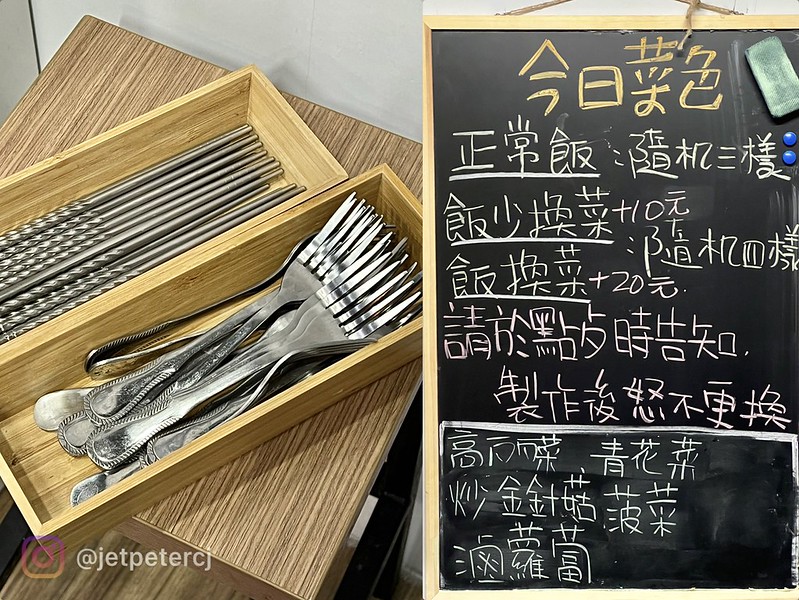 今日菜色
正常飯：隨机三樣
飯少換菜+10元
：隨机四樣
飯換菜+20元.
請於點歺時告知.
製作後怒不更換
高丽菜、青花菜
炒金針菇 菠菜
滷蘿蔔
@jetpetercj